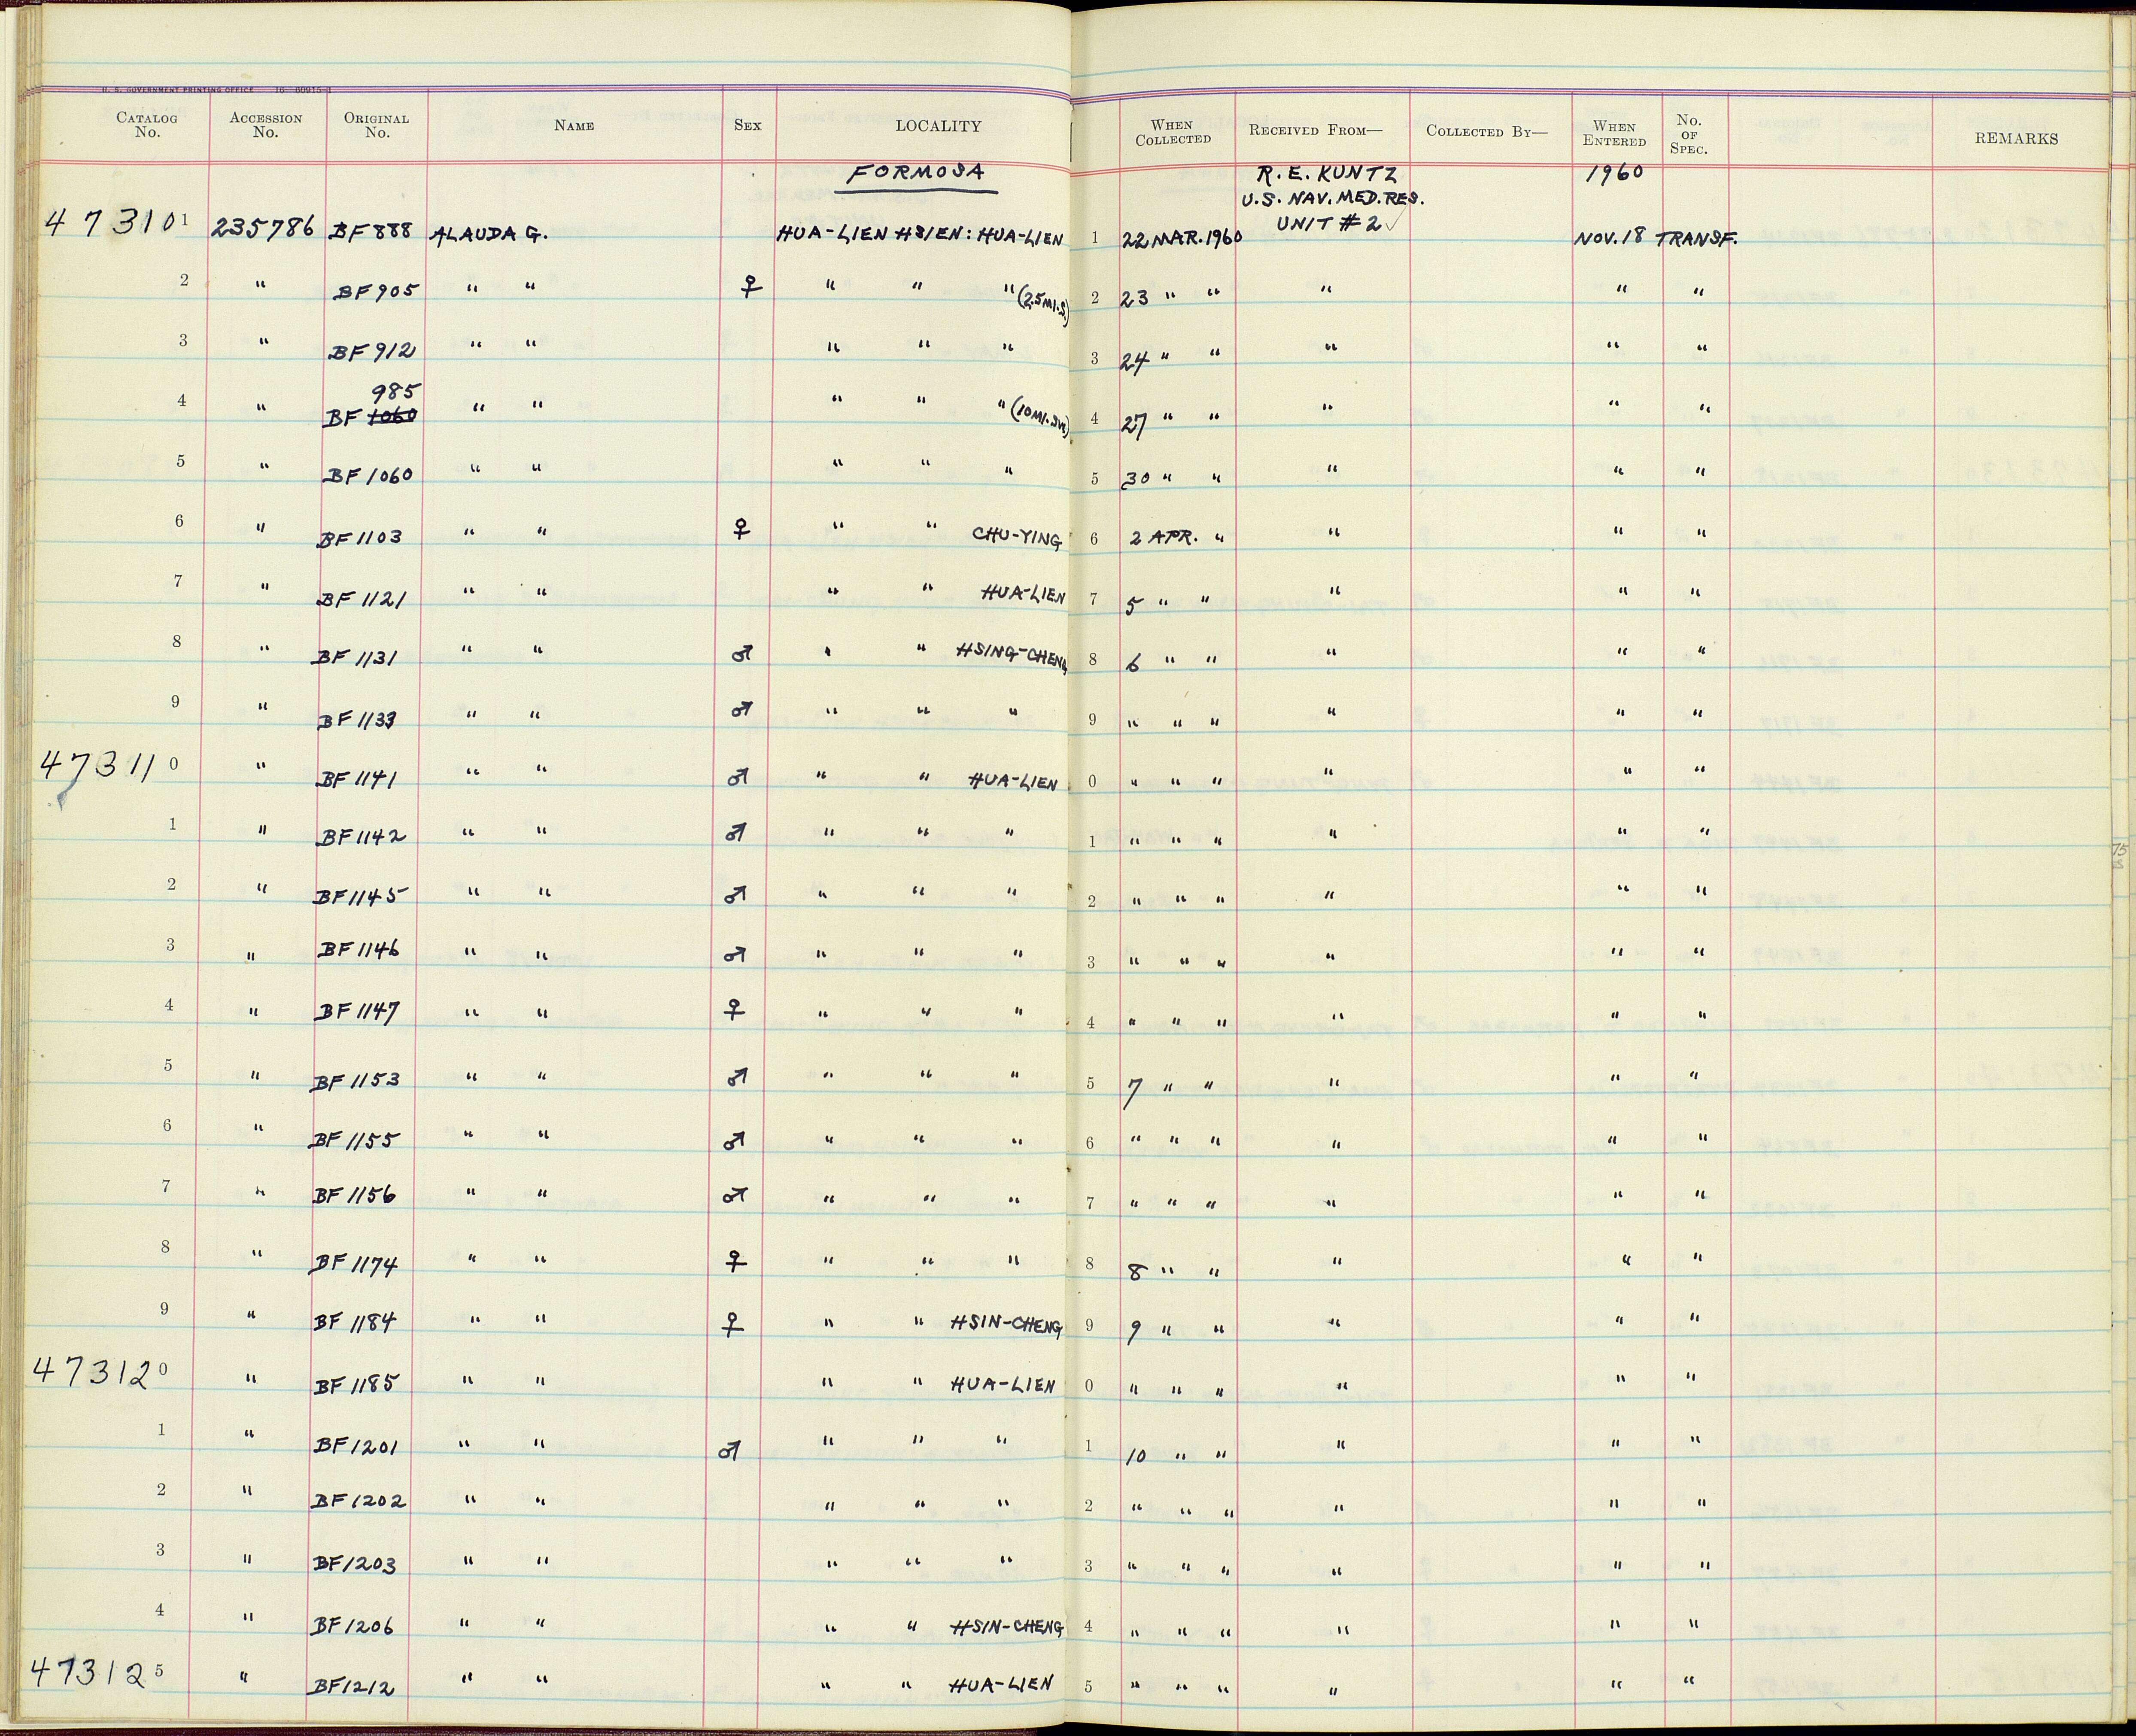 U. S. GOVERNMENT PRINTING OFFICE 16—60915-1
CATALOG No. ACCESSION No. ORIGINAL No. NAME SEX LOCALITY WHEN COLLECTED RECEIVED FROM— COLLECTED BY— WHEN ENTERED No. OF SPEC. REMARKS
FORMOSA R. E. KUNTZ 1960
U.S. NAV. MED. RES.
UNIT #2 ✓
473101 235786 BF 888 ALAUDA G. HUA-LIEN HSIEN: HUA-LIEN 1 22 MAR. 1960 NOV. 18 TRANSF.
2 " BF 905 " " ♀ " " " (2.5 MI. S.) 2 23 " " " " "
3 " BF 912 " " " " " 3 24 " " " " "
985
4 " BF 1060 " " " " " (10 MI. SW) 4 27 " " " " "
5 " BF 1060 " " " " " 5 30 " " " " "
6 " BF 1103 " " ♀ " " CHU-YING 6 2 APR. " " " "
7 " BF 1121 " " " " HUA-LIEN 7 5 " " " " "
8 " BF 1131 " " ♂ " " HSING-CHENG 8 6 " " " " "
9 " BF 1133 " " ♂ " " " 9 " " " " " "
473110 " BF 1141 " " ♂ " " HUA-LIEN 0 " " " " " "
1 " BF 1142 " " ♂ " " " 1 " " " " " "
2 " BF 1145 " " ♂ " " " 2 " " " " " "
3 " BF 1146 " " ♂ " " " 3 " " " " " "
4 " BF 1147 " " ♀ " " " 4 " " " " " "
5 " BF 1153 " " ♂ " " " 5 7 " " " " "
6 " BF 1155 " " ♂ " " " 6 " " " " " "
7 " BF 1156 " " ♂ " " " 7 " " " " " "
8 " BF 1174 " " ♀ " " " 8 8 " " " " "
9 " BF 1184 " " ♀ " " HSIN-CHENG 9 9 " " " " "
473120 " BF 1185 " " " " HUA-LIEN 0 " " " " " "
1 " BF 1201 " " ♂ " " " 1 10 " " " " "
2 " BF 1202 " " " " " 2 " " " " " "
3 " BF 1203 " " " " " 3 " " " " " "
4 " BF 1206 " " " " HSIN-CHENG 4 " " " " " "
473125 " BF 1212 " " " " HUA-LIEN 5 " " " " " "